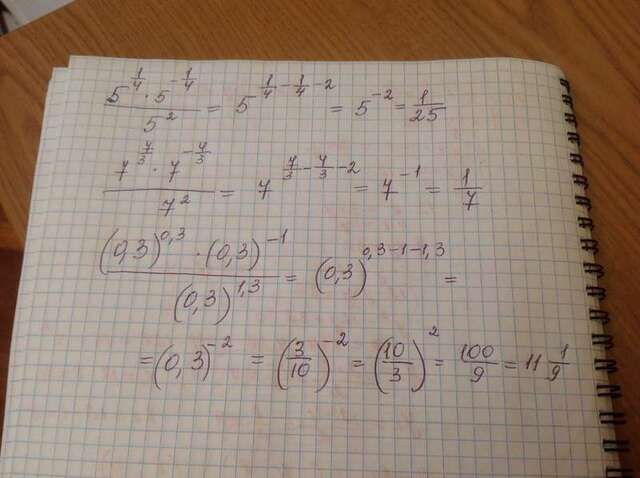 5^(1/4) · 5^(-1/4) / 5^2 = 5^(1/4 - 1/4 - 2) = 5^(-2) = 1/25
7^(7/3) · 7^(-4/3) / 7^2 = 7^(7/3 - 4/3 - 2) = 7^(-1) = 1/7
(0,3)^(0,3) · (0,3)^(-1) / (0,3)^(1,3) = (0,3)^(0,3-1-1,3) =
= (0,3)^(-2) = (3/10)^(-2) = (10/3)^2 = 100/9 = 11 1/9